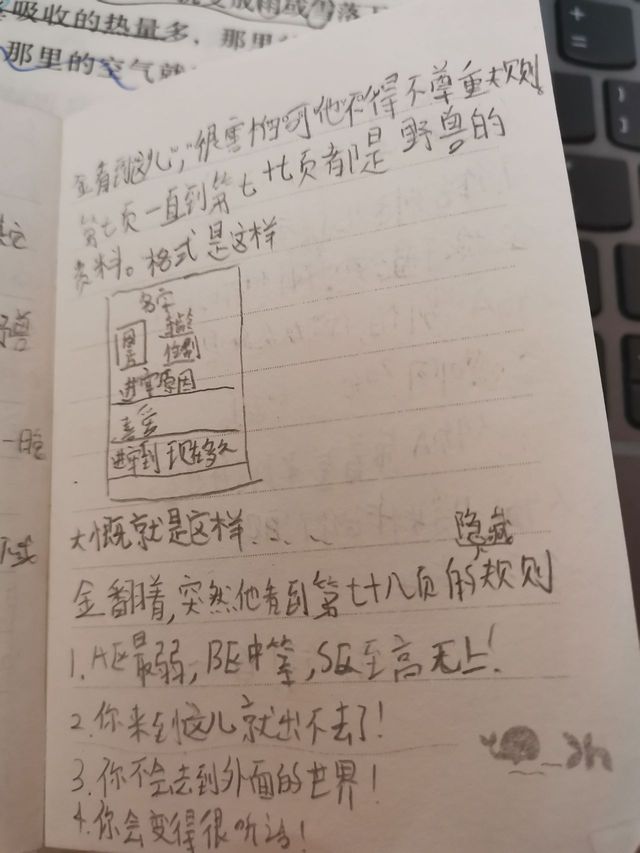 吸收的热量多，那里
那里的空气就
金看到这儿，很害怕可他不得不尊重规则。
第七页一直到第七十七页都是野兽的
资料。格式是这样
名字
照片
年龄
性别
进牢原因
喜爱
进牢到现在多久
大慨就是这样……
隐藏
金翻着，突然他看到第七十八页的规则
1.A区最弱，B区中等，S区至高无上！
2.你来到这儿就出不去了！
3.你不会去到外面的世界！
4.你会变得很听话！